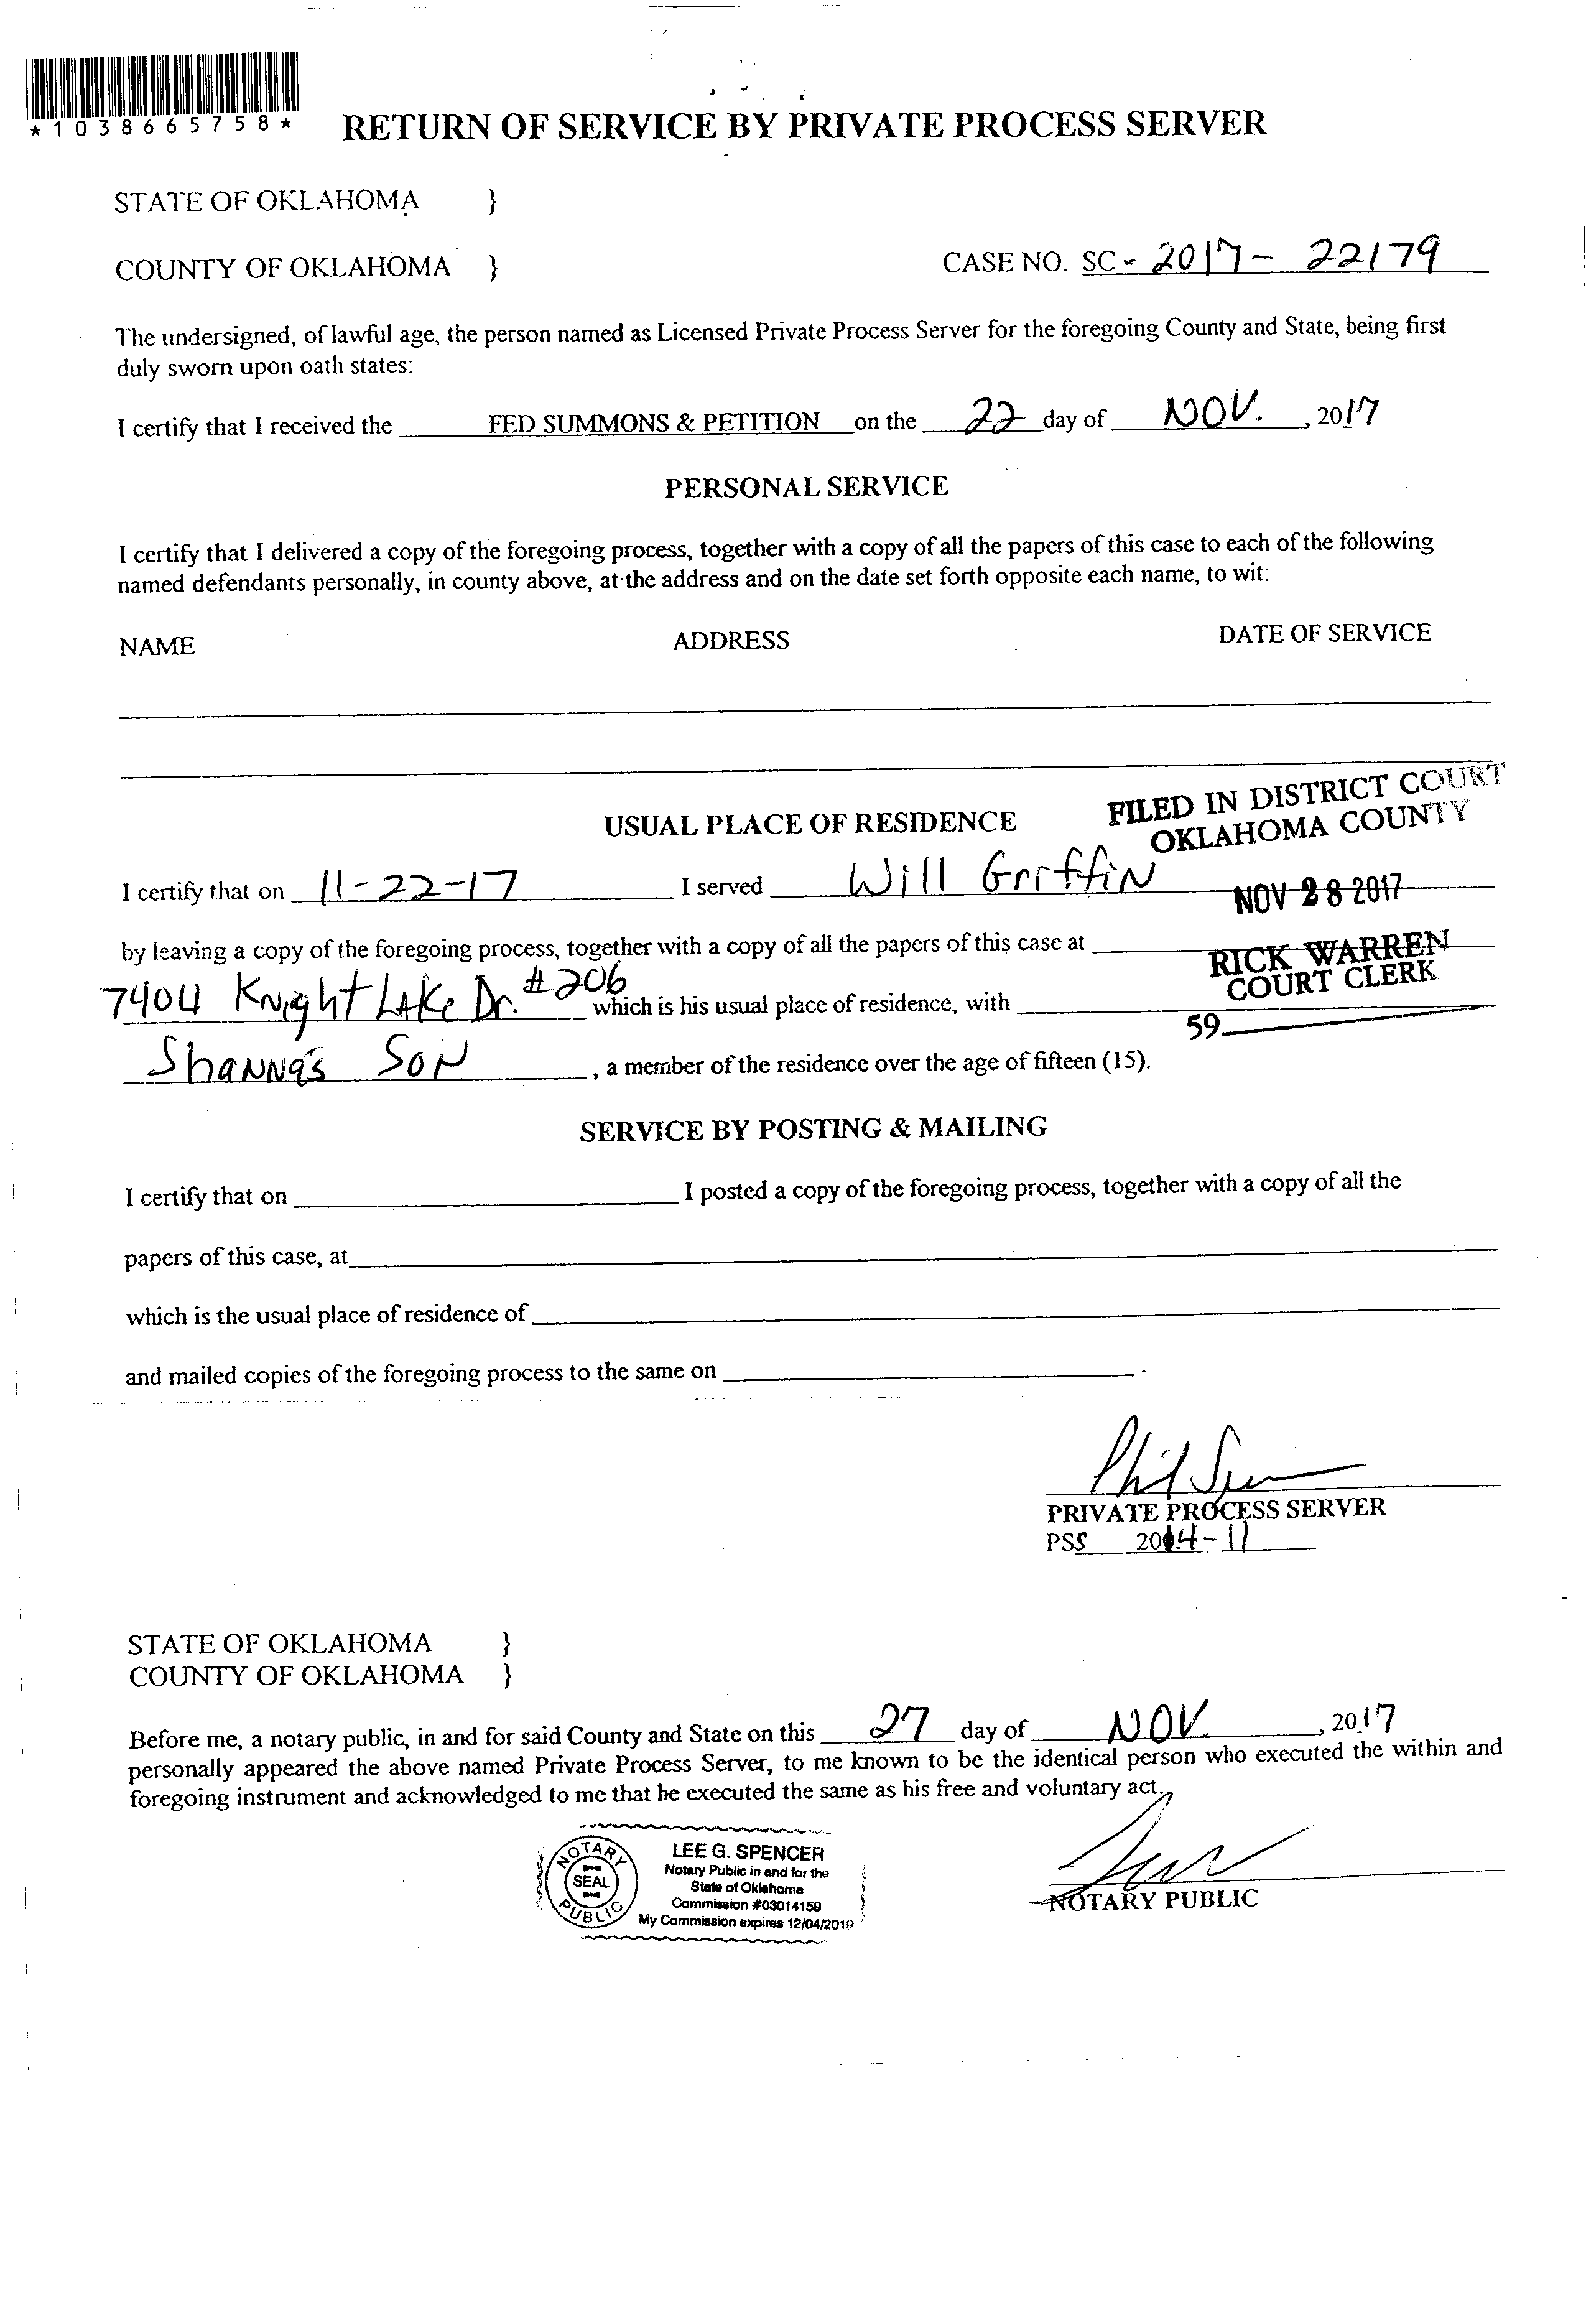 *1038665758*
RETURN OF SERVICE BY PRIVATE PROCESS SERVER
STATE OF OKLAHOMA }
COUNTY OF OKLAHOMA } CASE NO. SC - 2017 - 22179
The undersigned, of lawful age, the person named as Licensed Private Process Server for the foregoing County and State, being first
duly sworn upon oath states:
I certify that I received the FED SUMMONS & PETITION on the 22 day of NOV. , 2017
PERSONAL SERVICE
I certify that I delivered a copy of the foregoing process, together with a copy of all the papers of this case to each of the following
named defendants personally, in county above, at the address and on the date set forth opposite each name, to wit:
NAME ADDRESS DATE OF SERVICE
FILED IN DISTRICT COURT
OKLAHOMA COUNTY
USUAL PLACE OF RESIDENCE
I certify that on 11-22-17 I served Will Griffin
NOV 28 2017
by leaving a copy of the foregoing process, together with a copy of all the papers of this case at
RICK WARREN
COURT CLERK
7404 Knight Lake Dr. #206 which is his usual place of residence, with
59
Shanna's Son , a member of the residence over the age of fifteen (15).
SERVICE BY POSTING & MAILING
I certify that on I posted a copy of the foregoing process, together with a copy of all the
papers of this case, at
which is the usual place of residence of
and mailed copies of the foregoing process to the same on .
PRIVATE PROCESS SERVER
PSS 2014-11
STATE OF OKLAHOMA }
COUNTY OF OKLAHOMA }
Before me, a notary public, in and for said County and State on this 27 day of NOV. , 2017
personally appeared the above named Private Process Server, to me known to be the identical person who executed the within and
foregoing instrument and acknowledged to me that he executed the same as his free and voluntary act.
NOTARY PUBLIC
SEAL
LEE G. SPENCER
Notary Public in and for the
State of Oklahoma
Commission #03014159
My Commission expires 12/04/2019
NOTARY PUBLIC